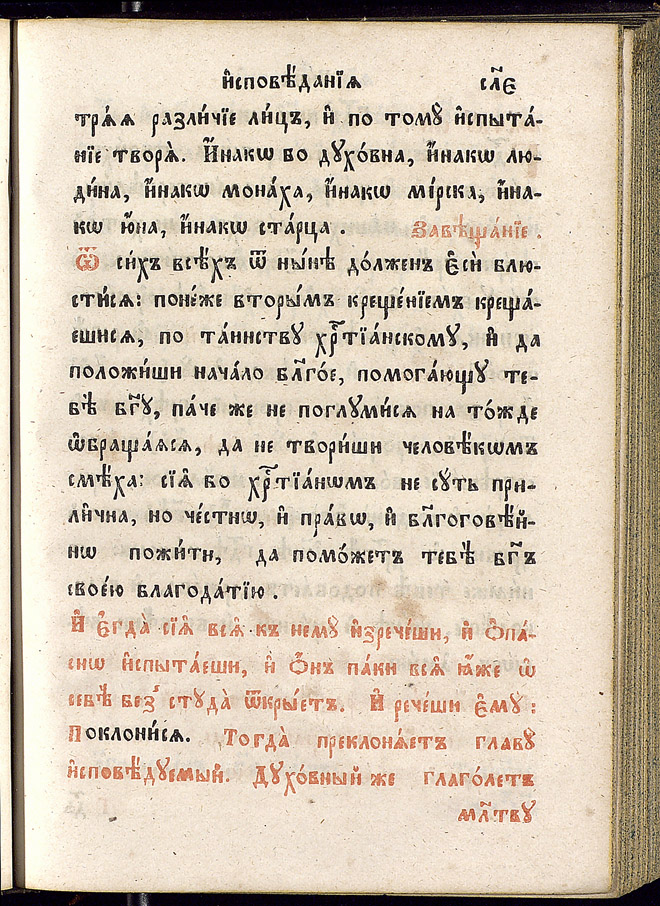 и҆сповѣ́данїѧ сл҃е
трѧ́ѧ разли́чїе ли́цъ, и҆ по томꙋ̀ и҆спыта́-
нїе творѧ̀. И҆́накѡ бо дꙋхо́вна, и҆́накѡ лю-
ди́на, и҆́накѡ мона́ха, и҆́накѡ мі́рска, и҆́на-
кѡ ю҆́на, и҆́накѡ ста́рца . Завѣща́нїе .
Ѿ си́хъ всѣ́хъ ѿ ны́нѣ до́лженъ є҆сѝ блю-
сти́сѧ: поне́же вторы́мъ креще́нїемъ креща́-
ешисѧ, по та́инствꙋ хрⷭ҇тїа́нскомꙋ, и҆ да
положи́ши нача́ло бл҃го́е, помога́ющꙋ те-
бѣ̀ бг҃ꙋ, па́че же не поглꙋми́сѧ на то́жде
ѡ҆браща́ѧсѧ, да не твори́ши человѣ́кѡмъ
смѣ́ха: сїѧ̑ бо хрⷭ҇тїа́нѡмъ не сꙋ́ть при-
ли́чна, но че́стнѡ, и҆ пра́вѡ, и҆ бл҃гоговѣ́й-
нѡ пожи́ти, да помо́жетъ тебѣ̀ бг҃ъ
свое́ю благода́тїю .
И҆ є҆гда̀ сїѧ̑ всѧ̑ къ немꙋ̀ и҆зрече́ши, и҆ ѻ҆па́-
снѡ и҆спыта́еши, и҆ ѻ҆́нъ па́ки всѧ̑ ꙗ҆̀же ѡ҆
себѣ̀ без̾ стꙋда̀ ѿкры́етъ. И҆ рече́ши є҆мꙋ̀ :
Поклони́сѧ. Тогда̀ преклонѧ́етъ главꙋ̀
и҆сповѣ́дꙋемый. Дꙋхо́вный же глаго́летъ
мл҃твꙋ